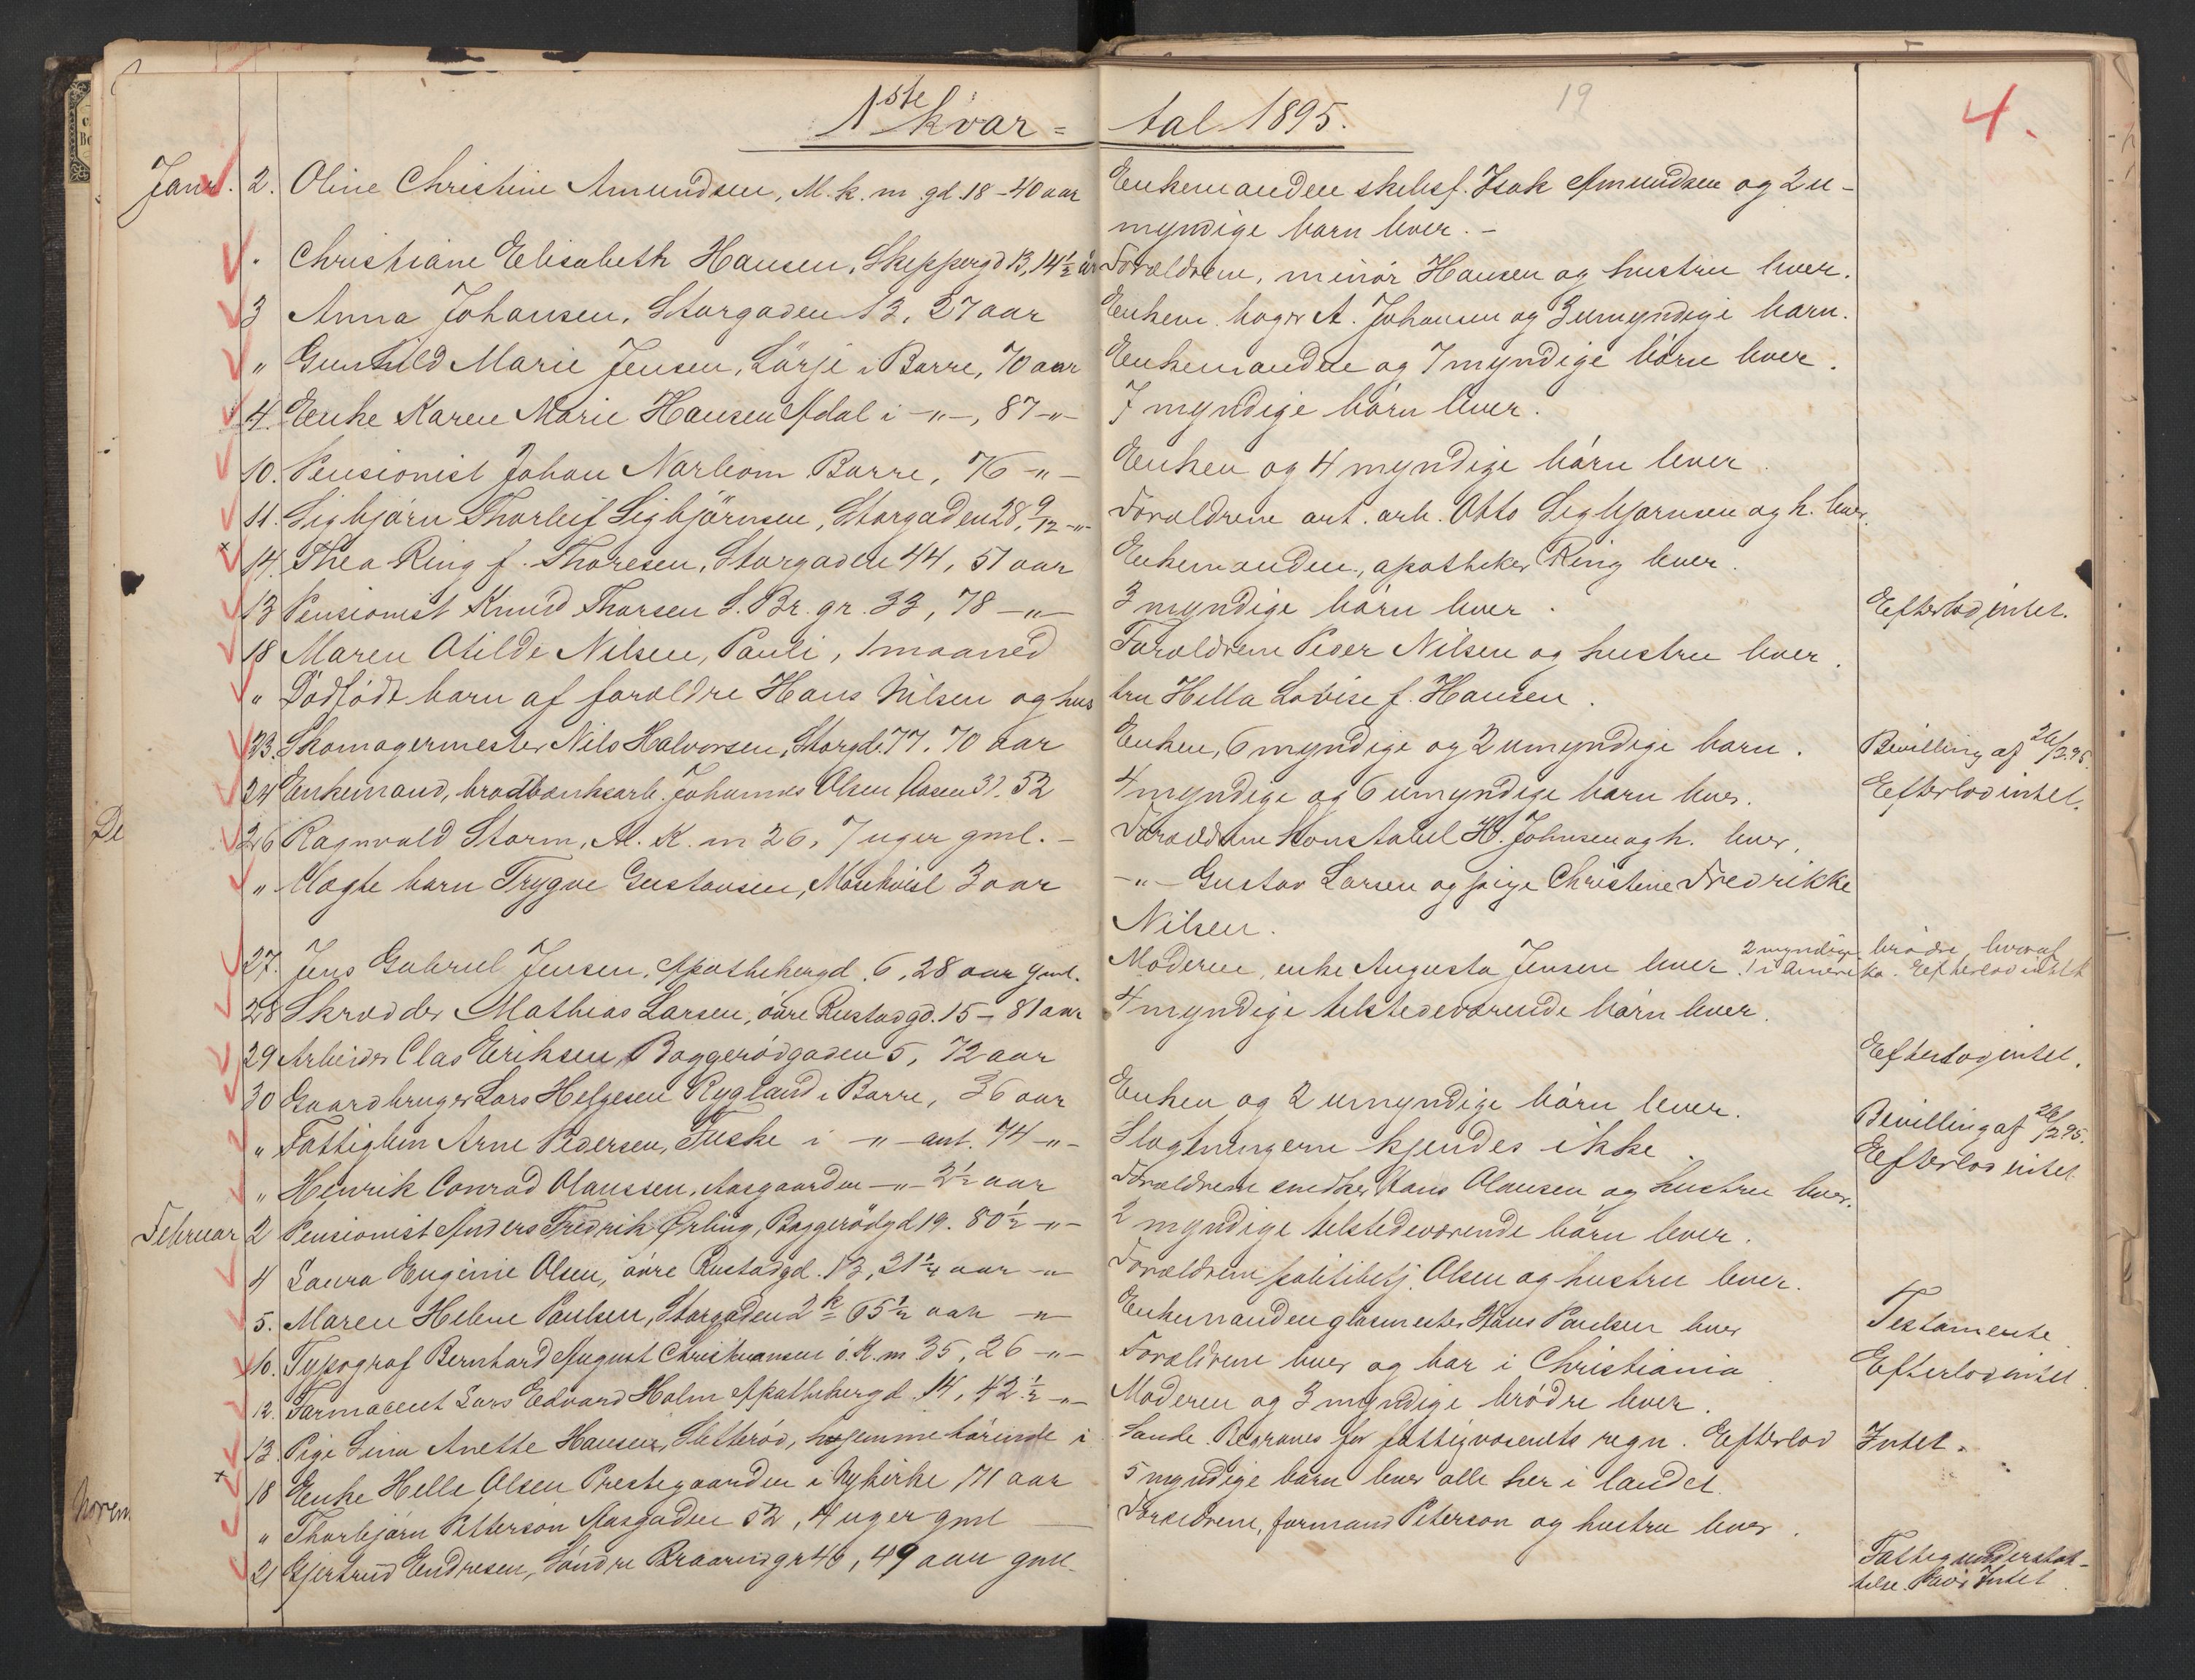 19
4.
1ste kvar= tal 1895.
Janr. 2. Oline Christine Amundsen, M. k. m. gd. 18 - 40 aar Enkemanden skibsf. Isak Amundsen og 2 u-
myndige barn lever. -
" Christiane Elisabeth Hansen, Skeppergd 13, 14½ år Forældrene, minör Hansen og hustru lever.
3 Anna Johansen, Storgaden 13, 37 aar Enkem. A. Johansen og 3 umyndige barn.
" Gunhild Marie Jensen, Lörje i Borre, 70 aar Enkemanden og 7 myndige börn lever.
4. Enke Karen Marie Hansen Adal i -"-, 87 -"- 7 myndige börn lever.
10. Pensionist Johan Narbom Borre, 76 -"- Enken og 4 myndige börn lever.
11. Sigbjörn Thorleif Sigbjörnsen, Storgaden 28, 9/12 -"- Forældrene art. arb. Otto Sigbjörnsen og h. lever.
14. Thea Ring f. Thoresen, Storgaden 44, 51 aar Enkemanden, apotheker Ring lever.
13 Pensionist Knud Thorsen S. Br. gr. 33, 78 -"- 3 myndige börn lever. Efterlod intet.
18 Maren Otilde Nilsen, Pauli, 1 maaned Forældrene Peder Nilsen og hustru lever.
" Dödfödt barn af forældre Hans Nilsen og hus tru Hella Lovise f. Hansen.
23. Skomagermester Nils Halvorsen, Storgd. 77. 70 aar Enken, 6 myndige og 2 umyndige barn. Bevilling af 26/2 95.
24 Enkemand, brodbænksarb. Johannes Olsen Aasen 31. 52 4 myndige og 6 umyndige börn lever. Efterlod intet.
26 Ragnvald Storm, M. K. m 26, 7 uger gml. - Forældrene Konstabel H. Johnsen og h. lever.
" Uægte barn Trygve Gustavsen, Mosekvist 3 aar -"- Gustav Larsen og pige Christine Fredrikke
Nilsen.
27. Jens Gabriel Jensen, Apothekergd. 6, 28 aar gml. Moderen, enke Augusta Jensen lever. 2 myndige brödre hvoraf
1 i Amerika. Efterlod intet
28 Skrædder Mathias Larsen, övre Rustadgd. 15 - 81 aar 4 myndige tilstedeværende börn lever.
29 Arbeider Clas Eriksen, Baggerödgaden 5, 72 aar Efterlod intet.
30 Gaardbruger Lars Helgesen Rygland i Borre, 36 aar Enken og 2 umyndige börn lever. Bevilling af 26/2 95.
" Fattiglem Arne Pedersen, Fuske i -"- ant. 74 -"- Slægtningerne kjendes ikke. Efterlod intet.
" Henrik Conrad Olaussen, Aasgaarden -"- 2½ aar Forældrene snedker Hans Olausen og hustru lever.
Februar 2 Pensionist Anders Fredrik Örbing, Baggerödgd 19. 80½ -"- 2 myndige tilstedeværende börn lever.
4 Laura Eugenie Olsen, övre Rustadgd. 13, 21½ aar -"- Forældrene politibetj. Olsen og hustru lever.
5. Maren Helene Paulsen, Storgaden 2k 65½ aar -"- Enkemanden glasmester Hans Paulsen lever Testamente
10. Typograf Bernhard August Christiansen ö. K. m 35, 26 -"- Forældrene lever og bor i Christiania Efterlod intet.
12. Farmaceut Lars Edvard Holm Apothekergd. 14, 42½ -"- Moderen og 3 myndige brödre lever.
13. Pige Lina Anette Hansen, Sletteröd, hjemmehörende i Sande. Begraves for fattigvæsenets regn. Efterlod Intet.
18 Enke Helle Olsen Prestegaarden i Nykirke 71 aar 5 myndige börn lever alle her i landet.
" Thorbjörn Petterson Aasgaden 52, 4 uger gml Forældrene, formand Peterson og hustru lever.
21 Gjertrud Endresen, Söndre Braarudgr 46, 49 aar gml. Fattigunderstöt-
telse. Intet.
De
Novem